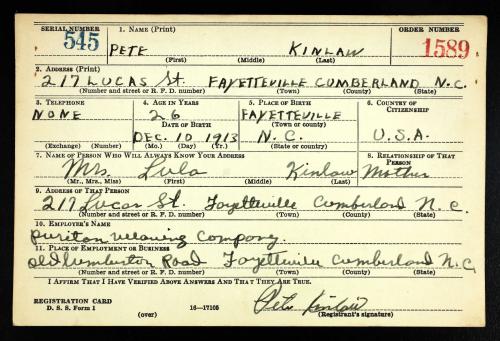 SERIAL NUMBER 1. NAME (Print) ORDER NUMBER
545 PETE KINLAW 1589
(First) (Middle) (Last)
2. ADDRESS (Print)
217 LUCAS St. FAYETTEVILLE CUMBERLAND N.C.
(Number and street or R. F. D. number) (Town) (County) (State)
3. TELEPHONE 4. AGE IN YEARS 5. PLACE OF BIRTH 6. COUNTRY OF CITIZENSHIP
NONE 26 FAYETTEVILLE
DATE OF BIRTH (Town or county)
DEC. 10 1913 N.C. U.S.A.
(Exchange) (Number) (Mo.) (Day) (Yr.) (State or country)
7. NAME OF PERSON WHO WILL ALWAYS KNOW YOUR ADDRESS 8. RELATIONSHIP OF THAT PERSON
Mrs. Lula Kinlaw Mother
(Mr., Mrs., Miss) (First) (Middle) (Last)
9. ADDRESS OF THAT PERSON
217 Lucas St. Fayetteville Cumberland N.C.
(Number and street or R. F. D. number) (Town) (County) (State)
10. EMPLOYER'S NAME
Puritan Weaving Company.
11. PLACE OF EMPLOYMENT OR BUSINESS
Old Lumberton Road Fayetteville Cumberland N.C.
(Number and street or R. F. D. number) (Town) (County) (State)
I AFFIRM THAT I HAVE VERIFIED ABOVE ANSWERS AND THAT THEY ARE TRUE.
REGISTRATION CARD
D. S. S. Form 1 16—17105 Pete Kinlaw
(over) (Registrant's signature)